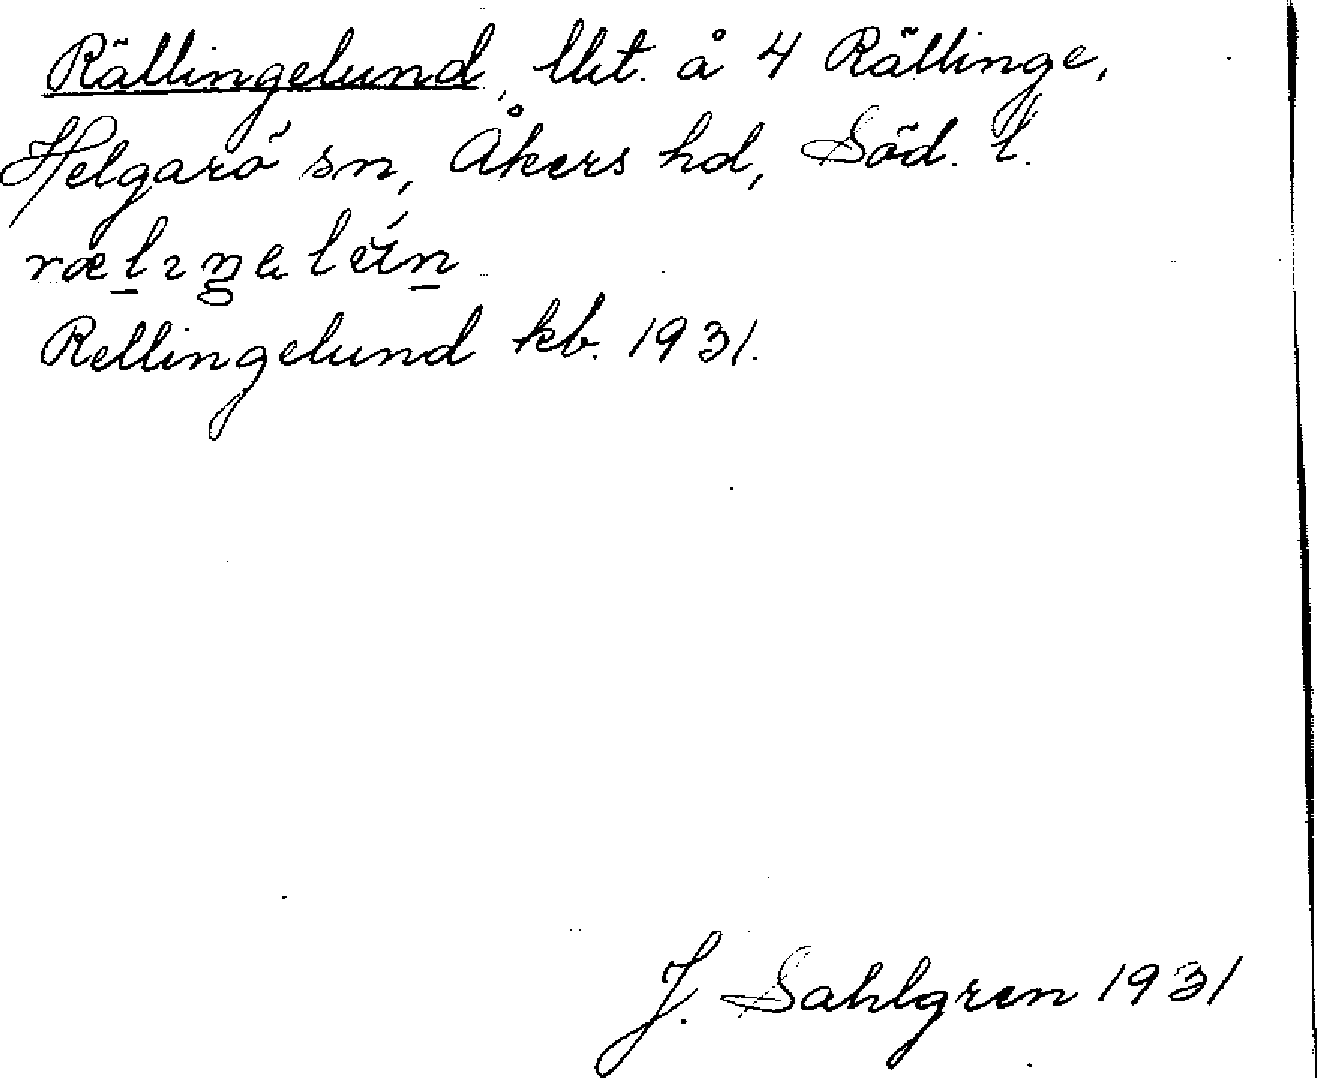 Rällingelund, lht. å 4 Rällinge,
Helgarö sn, Åkers hd, Söd. l.
Rellingelund kb. 1931.
J. Sahlgren 1931